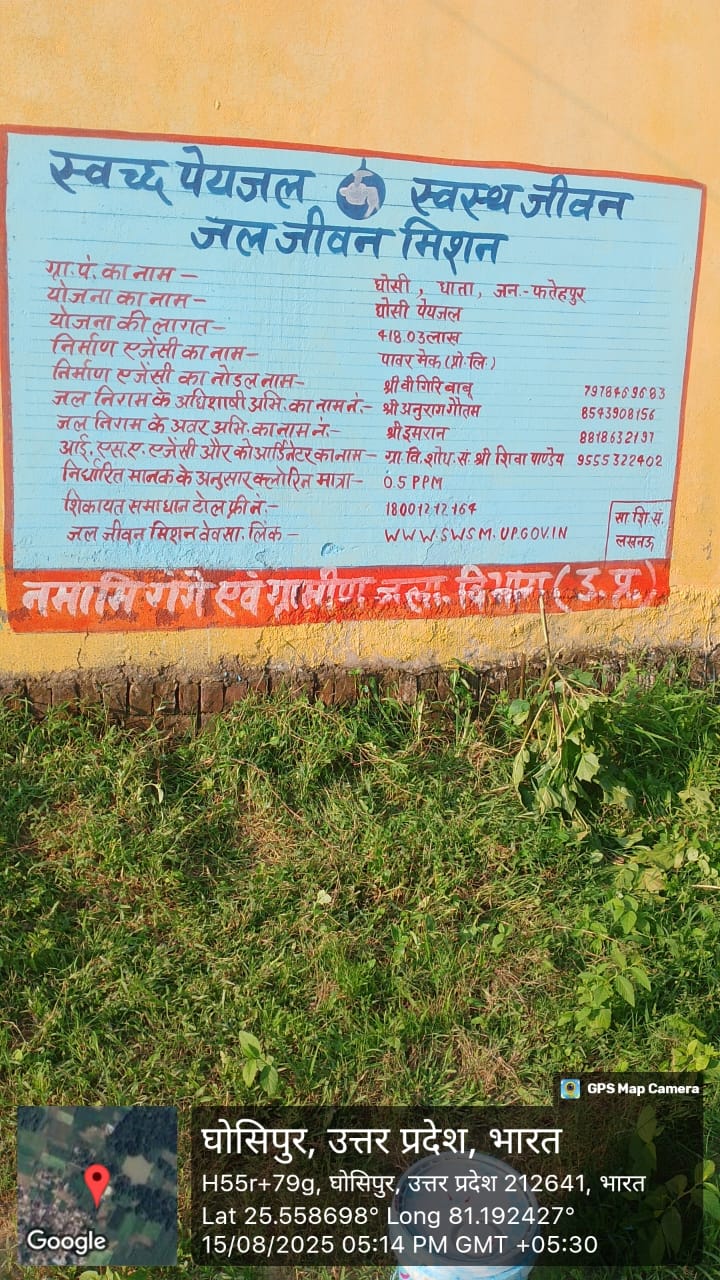 स्वच्छ पेयजल स्वस्थ जीवन
जल जीवन मिशन
ग्रा.पं. का नाम – घोसी , धाता, जन.- फतेहपुर
योजना का नाम – घोसी पेयजल
योजना की लागत – 418.03लाख
निर्माण एजेंसी का नाम – पावर मेक (प्रो.लि.)
निर्माण एजेंसी का नोडल नाम – श्री वी गिरि बाबू 7978469683
जल निगम के अधिशाषी अभि. का नाम नं.- श्री अनुराग गौतम 8543908156
जल निगम के अवर अभि. का नाम नं.- श्री इमरान 8818632197
आई. एस.ए. एजेंसी और कोआर्डिनेटर का नाम – ग्रा. वि. शोध. सं. श्री शिवा पाण्डेय 9555322402
निर्धारित मानक के अनुसार क्लोरिन मात्रा – 0.5 PPM
शिकायत समाधान टोल फ्री नं.- 18001212164
जल जीवन मिशन वेवसा. लिंक – WWW.SWSM.UP.GOV.IN
सा. शि. सं.
लखनऊ
नमामि गंगे एवं ग्रामीण जला. विभाग (उ. प्र.)
GPS Map Camera
घोसिपुर, उत्तर प्रदेश, भारत
H55r+79g, घोसिपुर, उत्तर प्रदेश 212641, भारत
Lat 25.558698° Long 81.192427°
15/08/2025 05:14 PM GMT +05:30
Google